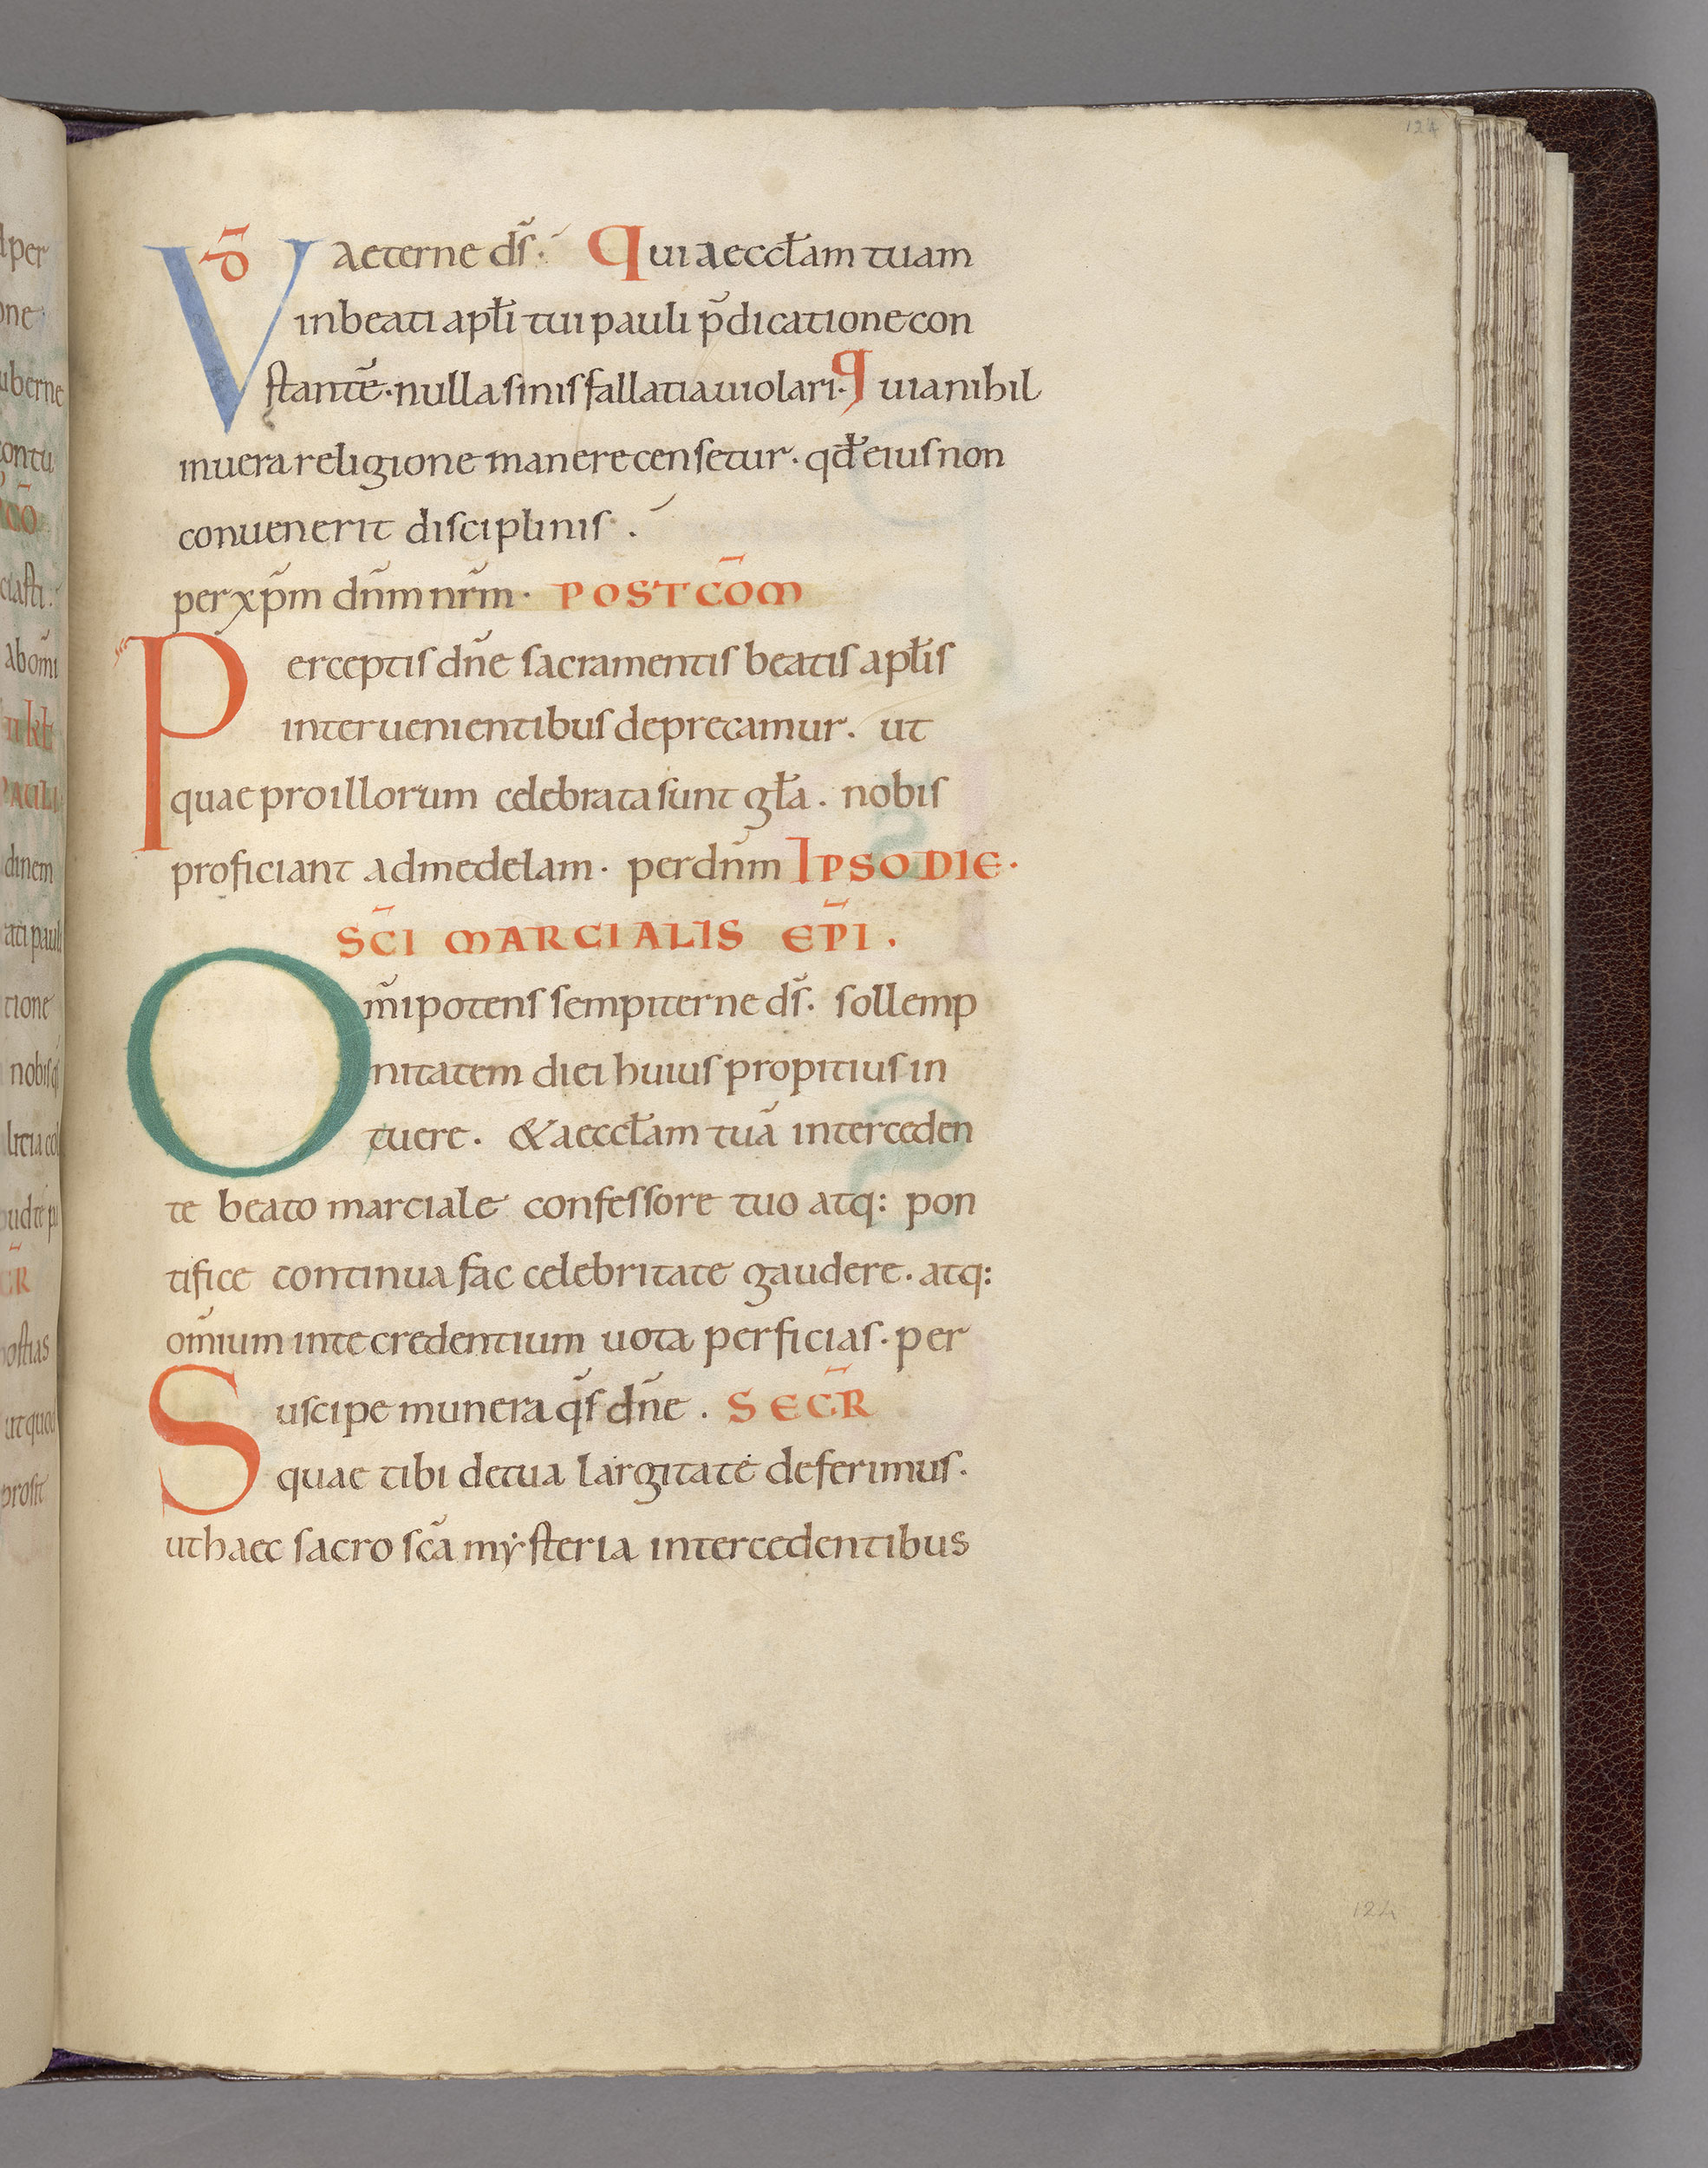 124
VD̄ aeterne ds̄. Qui aeccłam tuam
in beati apłi tui pauli p̄dicatione con
stantē. nulla sinis fallatia uiolari. Quia nihil
in uera religione manere censetur. qđ eius non
conuenerit disciplinis.
per xp̄m dn̄m nr̄m. POSTCŌM
Perceptis dn̄e sacramentis beatis apłis
interuenientibus deprecamur. ut
quae pro illorum celebrata sunt gła. nobis
proficiant ad medelam. per dn̄m IPSO DIE.
SC̄I MARCIALIS EP̄I.
Om̄ipotens sempiterne ds̄. sollemp
nitatem diei huius propitius in
tuere. & aeccłam tuā interceden
te beato marciale confessore tuo atq: pon
tifice continua fac celebritate gaudere. atq:
om̄ium in te credentium uota perficias. per
Suscipe munera qs̄ dn̄e. SECR̄
quae tibi de tua largitate deferimus.
ut haec sacro sc̄a mẏsteria intercedentibus
124